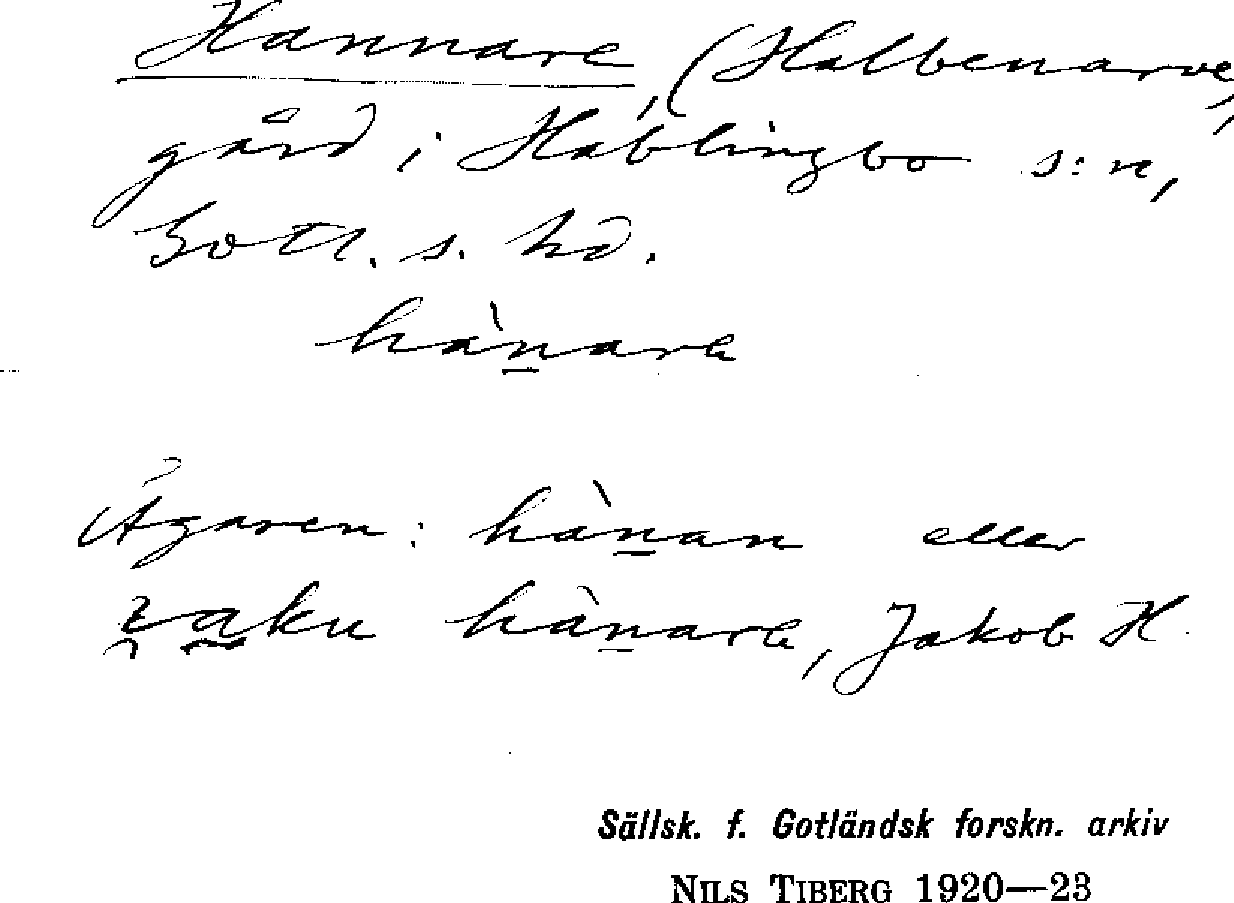 Hannare, (Halbenarve,
gård i Hablingbo s:n,
Gotl. s. hd.
hànare
Ägaren: hànan eller
hànare, Jakob H.
Sällsk. f. Gotländsk forskn. arkiv
NILS TIBERG 1920—23